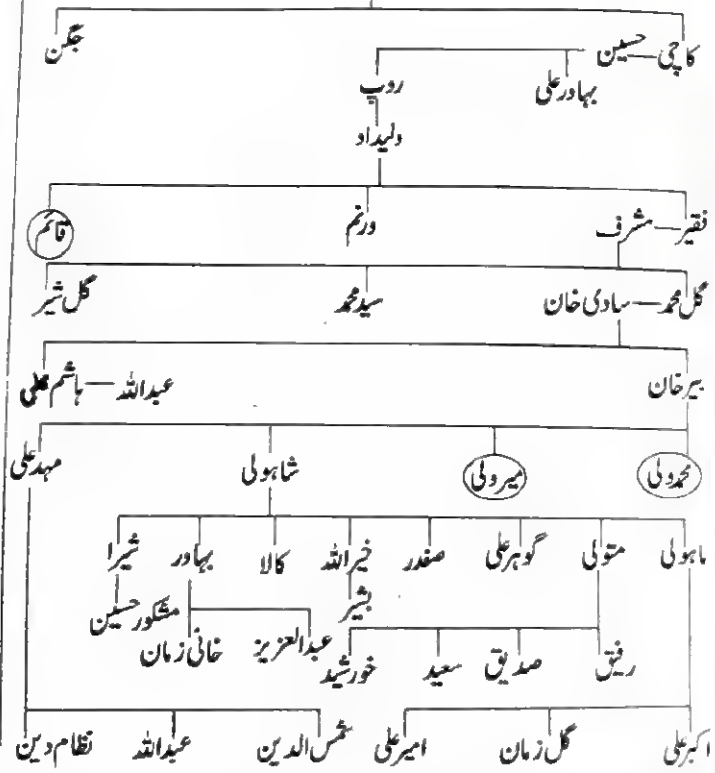 کاچی — حسین جگن
بہادر علی روپ
ولیداد
فقیر — مشرف ورنم قائم
گل محمد — سادی خان سید محمد گل شیر
بیر خان عبداللہ — ہاشم علی
محمد ولی میر ولی شاہولی مہد علی
ماہولی متولی گوہر علی صفدر خیر اللہ کالا بہادر شیرا
بشیر مشکور حسین
رفیق صدیق سعید خورشید عبدالعزیز خانی زمان
اکبر علی گل زمان امیر علی شمس الدین عبداللہ نظام دین